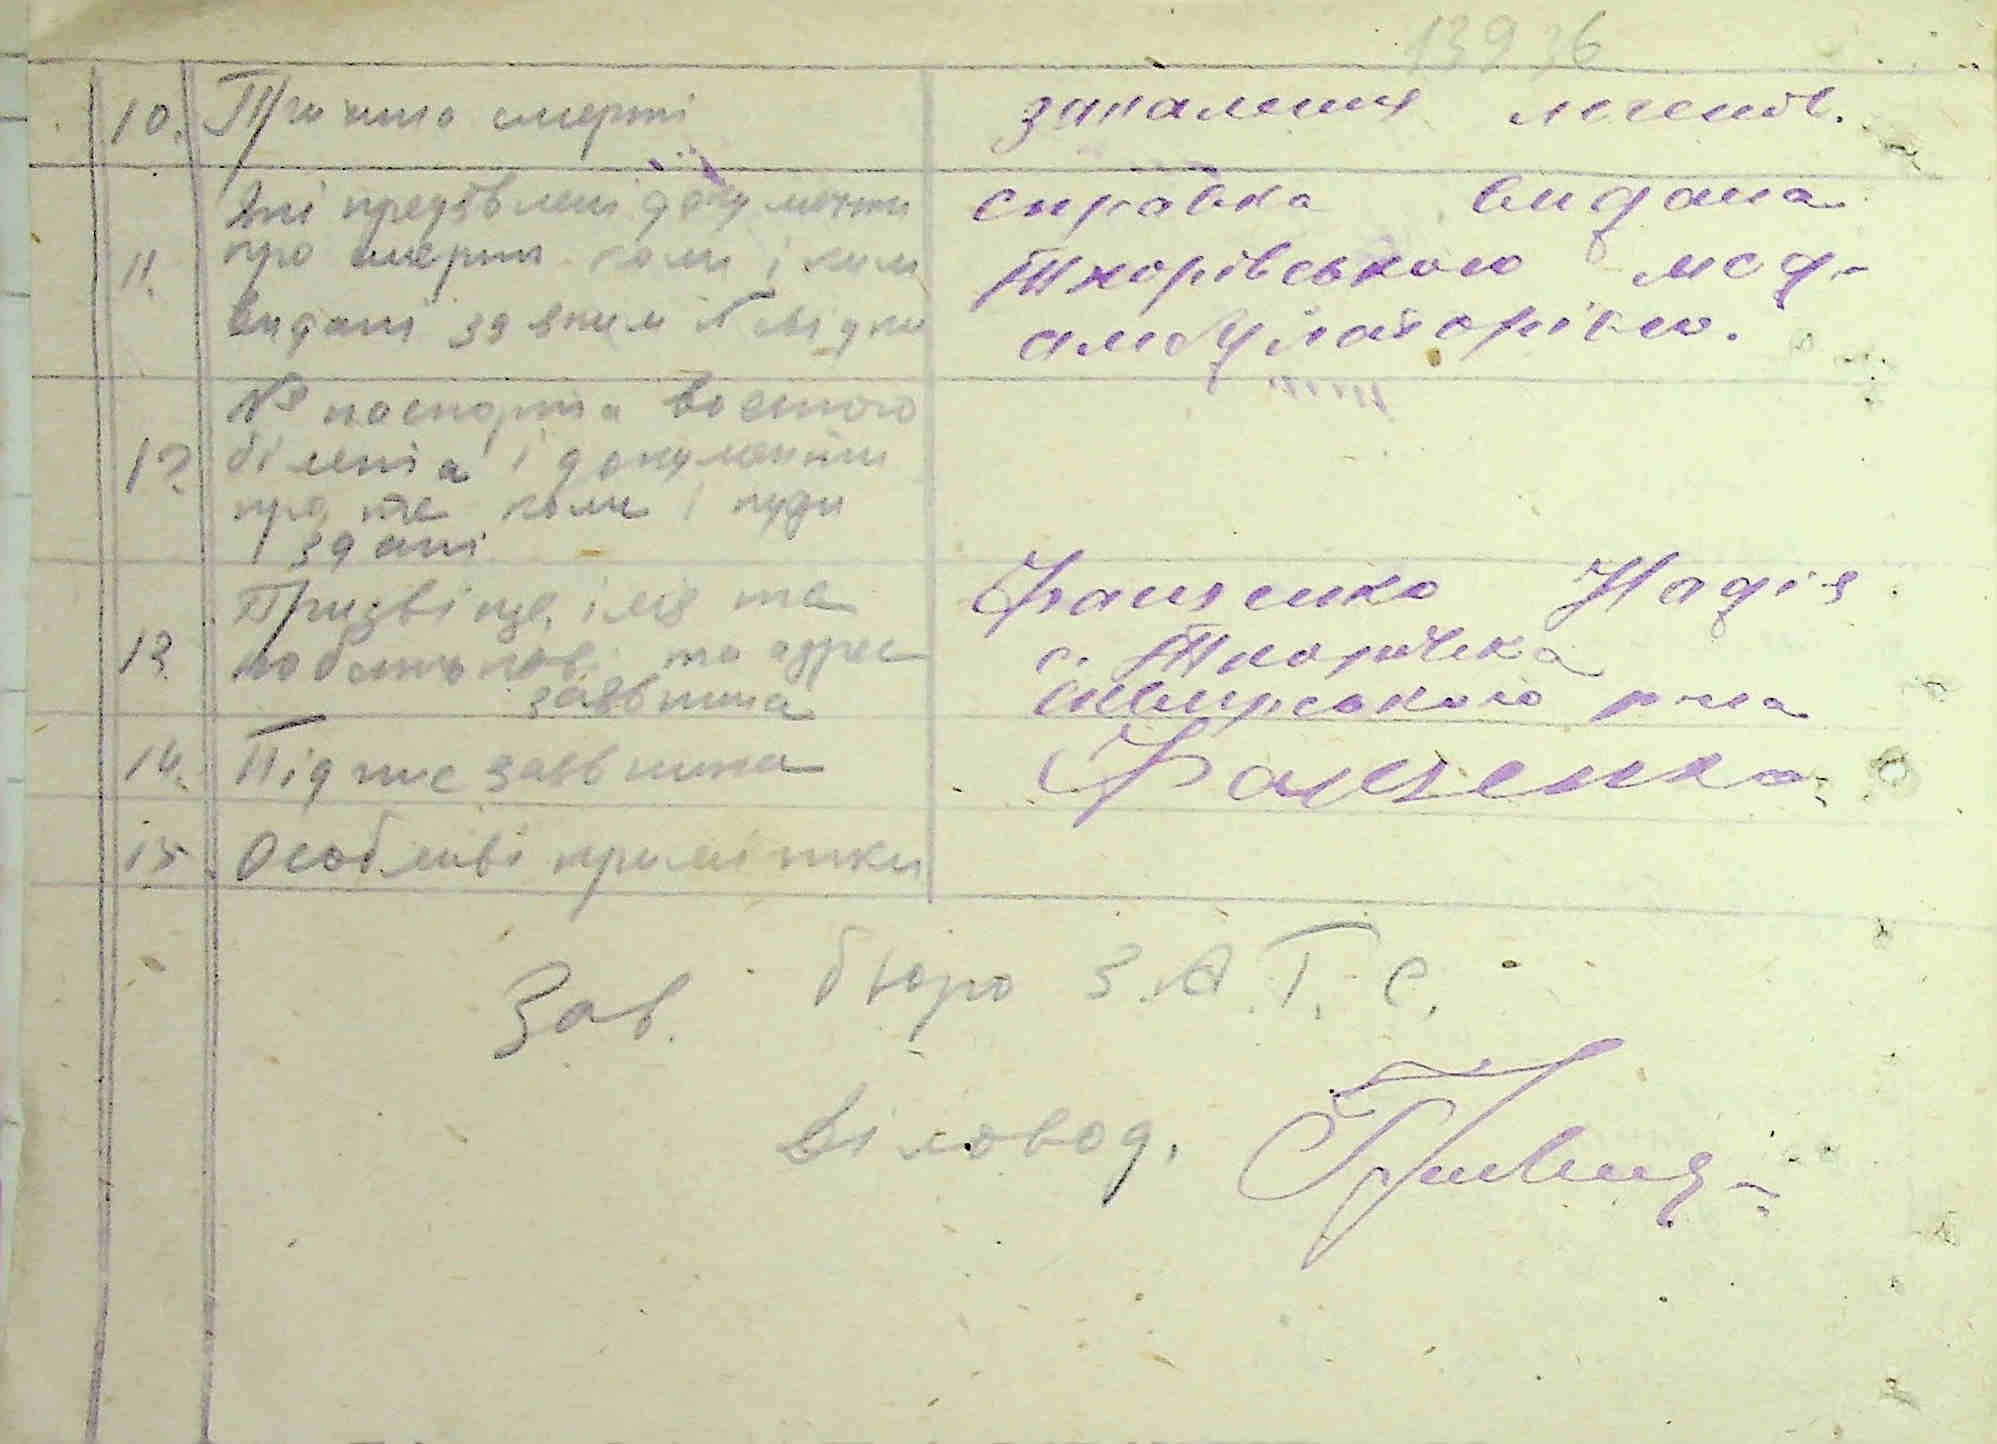 13936
10. Причина смерти запалення легенів.
Які предявлені документи
про смерть коли і ким
видані за яким № відки
11. справка видана
Тхорівського мед-
амбулаторією.
№ паспорта воєнного
12 білета і документи
про те коли і куди
здані
Призвіще, імя та
13 побатькові та адрес
заявника
Фащенко Надія
с. Тхорівка
сквирського р-на
14. Підпис заявника Фащенко
15 Особливі примітки
Зав. бюро З.А.Г.С.
Діловод.